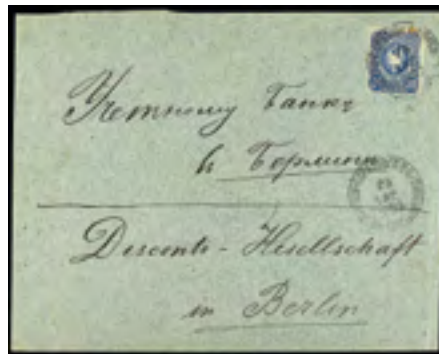 Учетному Банку
въ Берлинѣ
Disconto-Gesellschaft
in Berlin